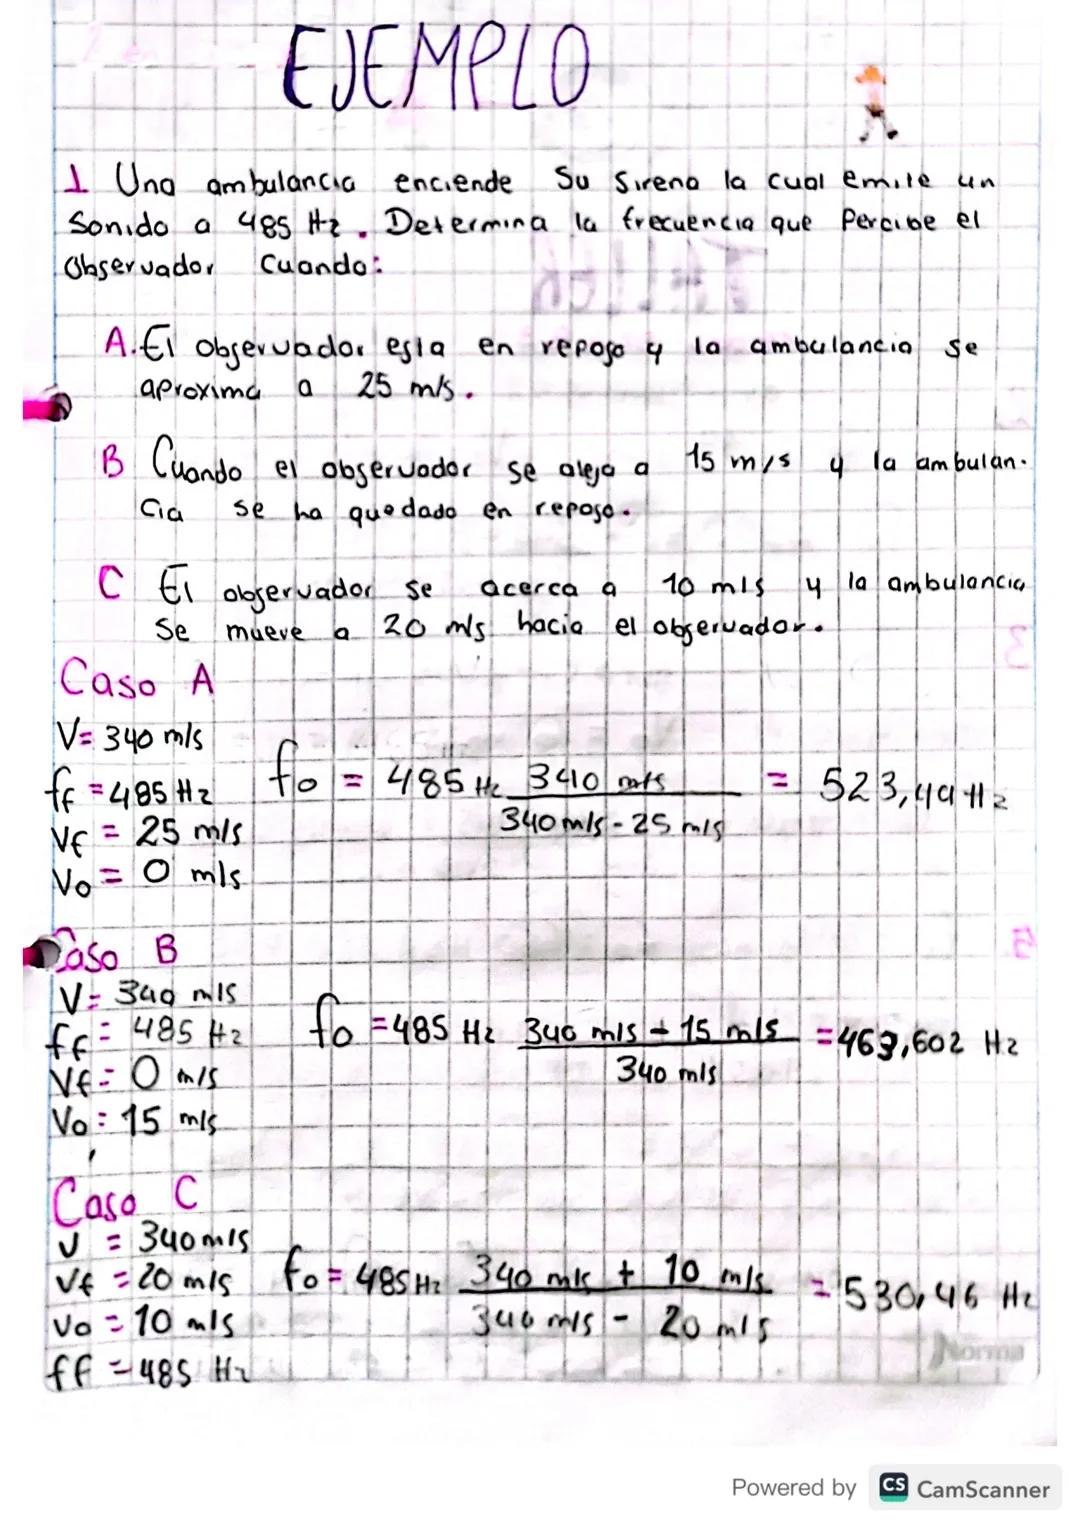 EJEMPLO
1 Una ambulancia enciende Su Sirena la cual emite un
Sonido a 485 Hz. Determina la frecuencia que Percibe el
Observador Cuando:
A. El observador esta en reposo y la ambulancia se
aproxima a 25 m/s.
B Cuando el observador se aleja a 15 m/s y la ambulan-
cia se ha quedado en reposo.
C El observador se acerca a 10 m/s y la ambulancia
Se mueve a 20 m/s hacia el observador.
Caso A
V= 340 m/s
ff = 485 Hz
Vf = 25 m/s
Vo = 0 m/s
fo = 485 Hz 340 m/s = 523,49 Hz
340 m/s - 25 m/s
Caso B
V= 340 m/s
ff = 485 Hz
Vf = 0 m/s
Vo = 15 m/s
fo = 485 Hz 340 m/s - 15 m/s = 463,602 Hz
340 m/s
Caso C
V = 340 m/s
Vf = 20 m/s
Vo = 10 m/s
ff = 485 Hz
fo = 485 Hz 340 m/s + 10 m/s = 530,46 Hz
340 m/s - 20 m/s
Norma
Powered by CS CamScanner